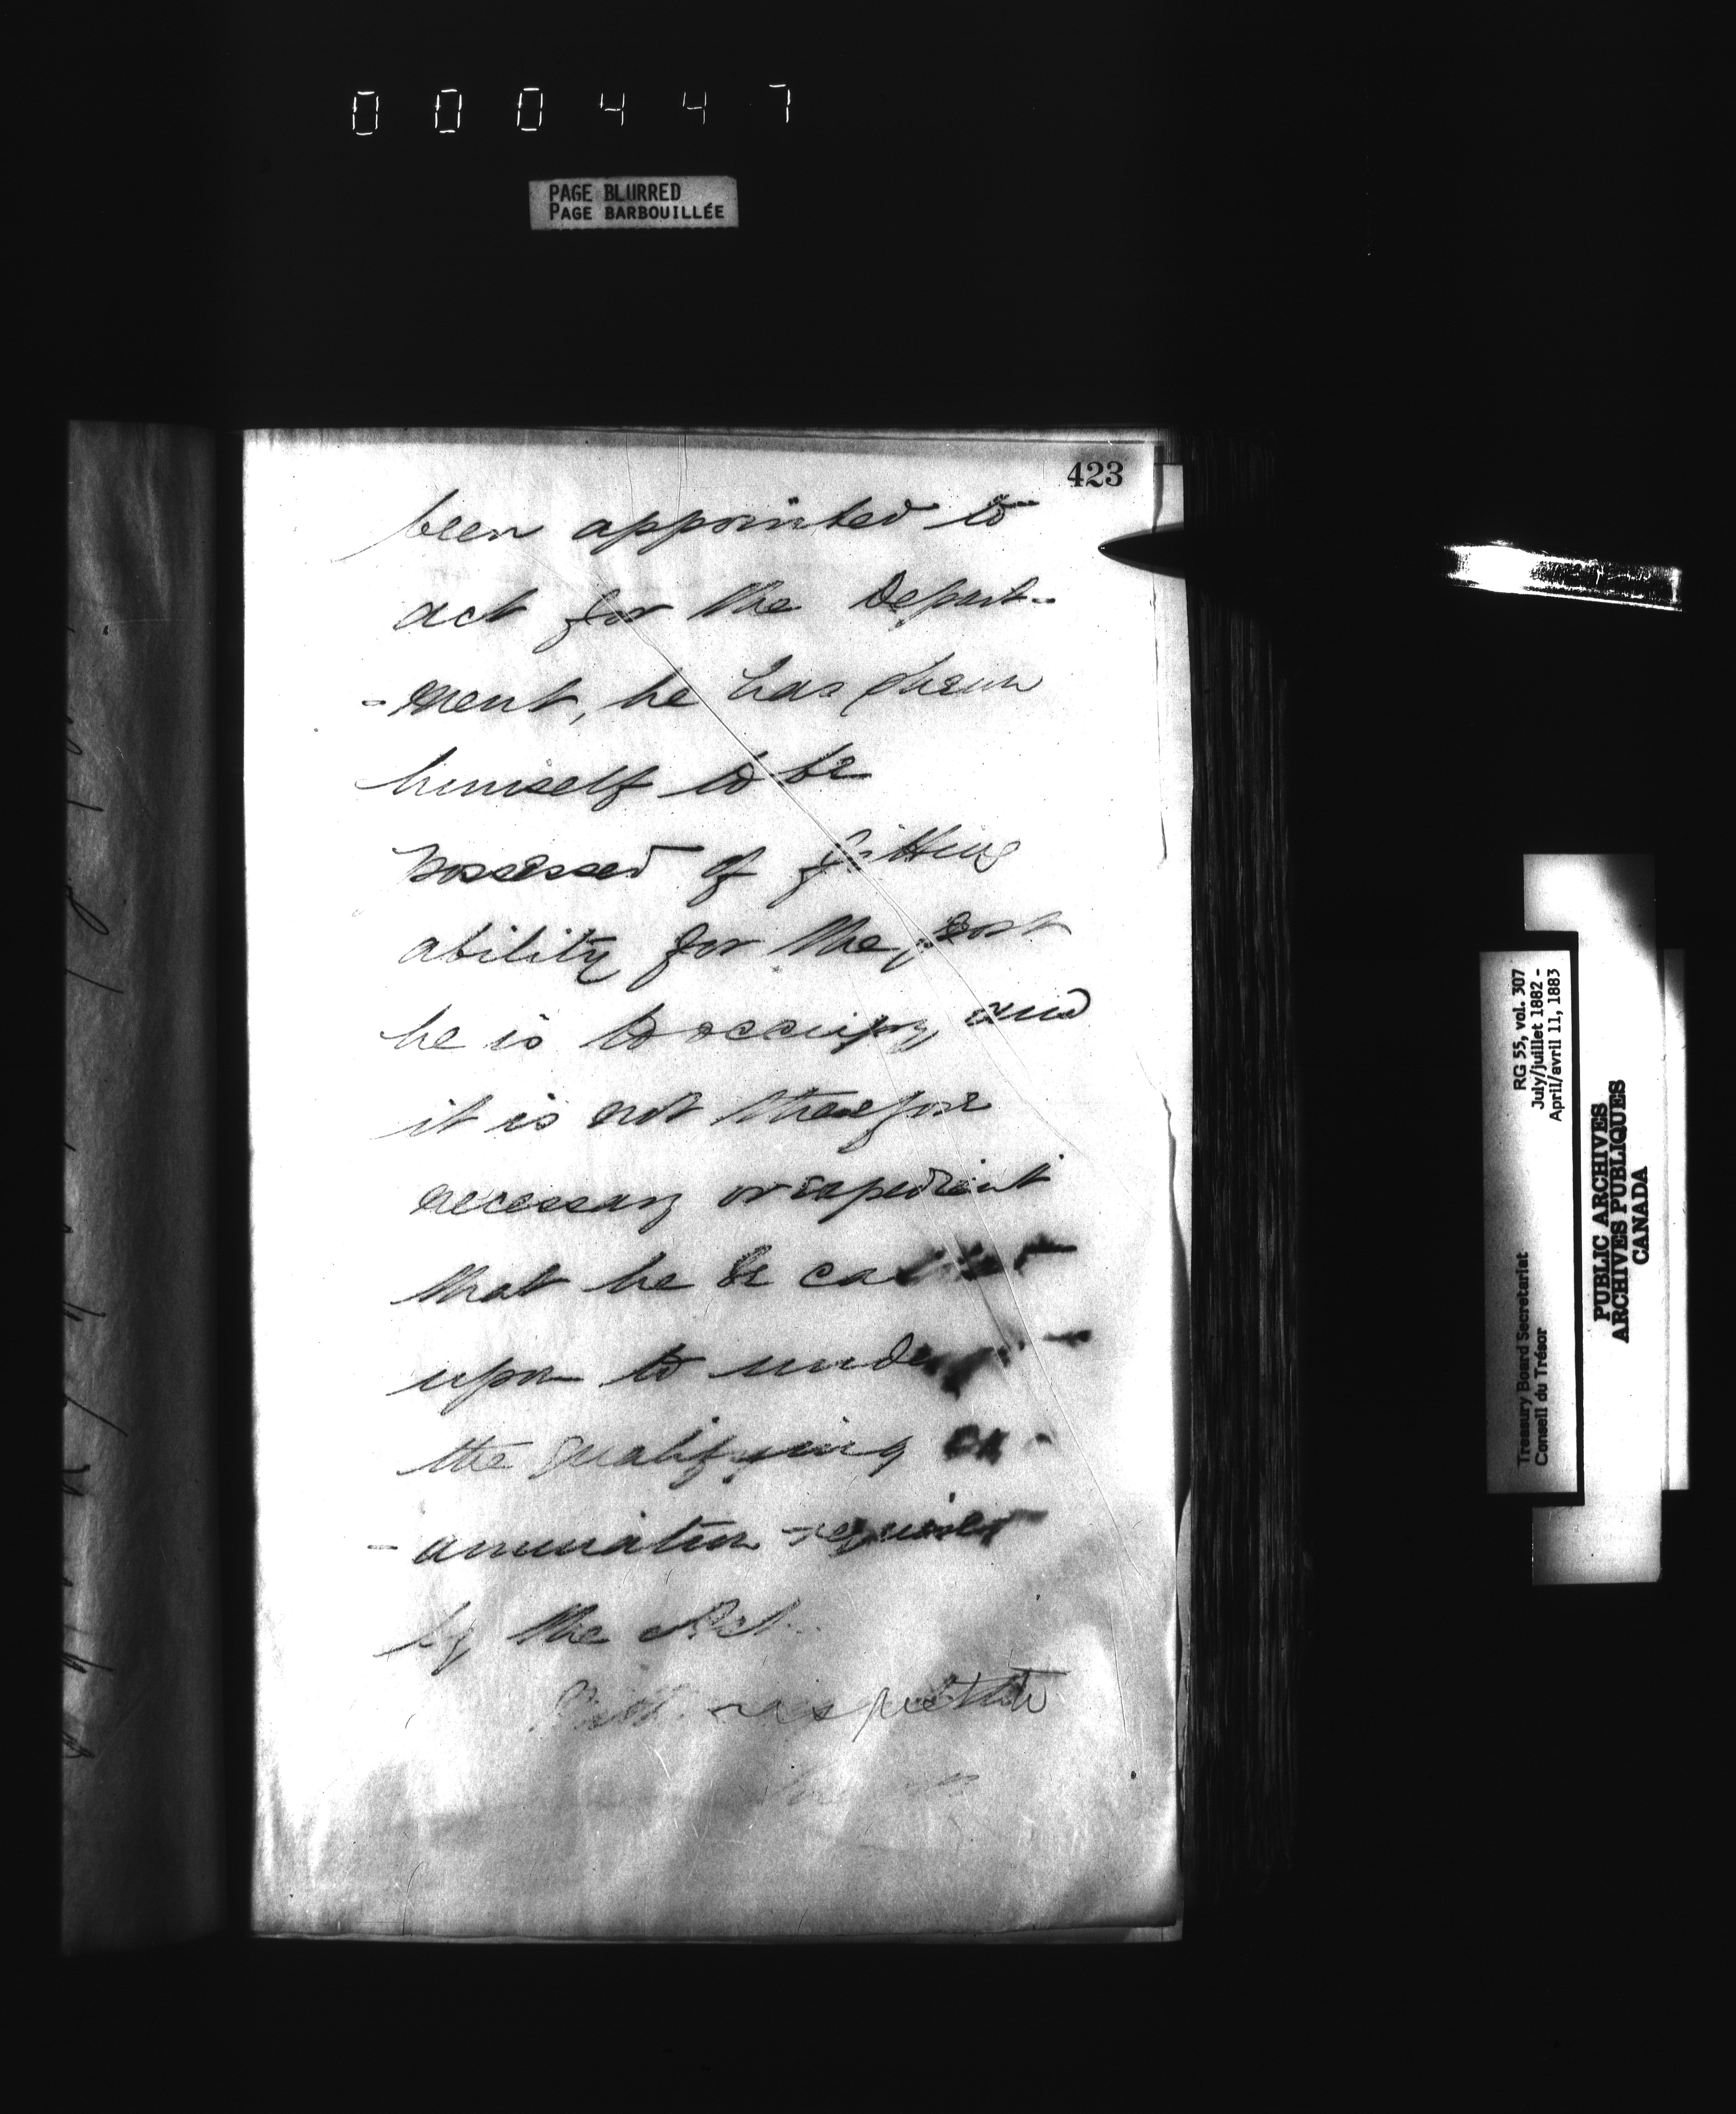 000447
PAGE BLURRED
PAGE BARBOUILLÉE
423
been appointed to
act for the Depart-
-ment, he has shewn
himself to be
possessed of fitting
ability for the post
he is to occupy, and
it is not therefore
necessary or expedient
that he be called
upon to undergo
the qualifying ex-
-amination required
by the Act.
With respect to
RG 55, vol. 307
July/juillet 1882 -
April/avril 11, 1883
Treasury Board Secretariat
Conseil du Trésor
PUBLIC ARCHIVES
ARCHIVES PUBLIQUES
CANADA